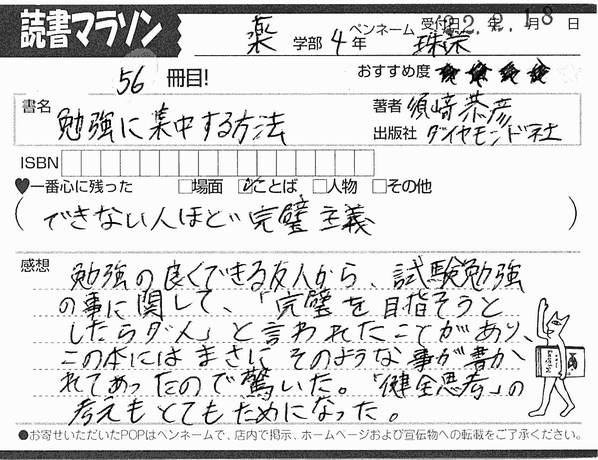 読書マラソン
受付日 22. 2. 18 日
年 月
薬 学部 4 年 ペンネーム 珠宗
56 冊目!
おすすめ度 ★★★★☆
書名 勉強に集中する方法
著者 須﨑恭彦
出版社 ダイヤモンド社
ISBN
♥一番心に残った □場面 ☑ことば □人物 □その他
(できない人ほど完璧主義)
感想
勉強の良くできる友人から、試験勉強
の事に関して、「完璧を目指そうと
したらダメ」と言われたことがあり、
この本にはまさにそのような事が書か
れてあったので驚いた。「健全思考」の
考えもとてもためになった。
●お寄せいただいたPOPはペンネームで、店内で掲示、ホームページおよび宣伝物への転載をご了承ください。